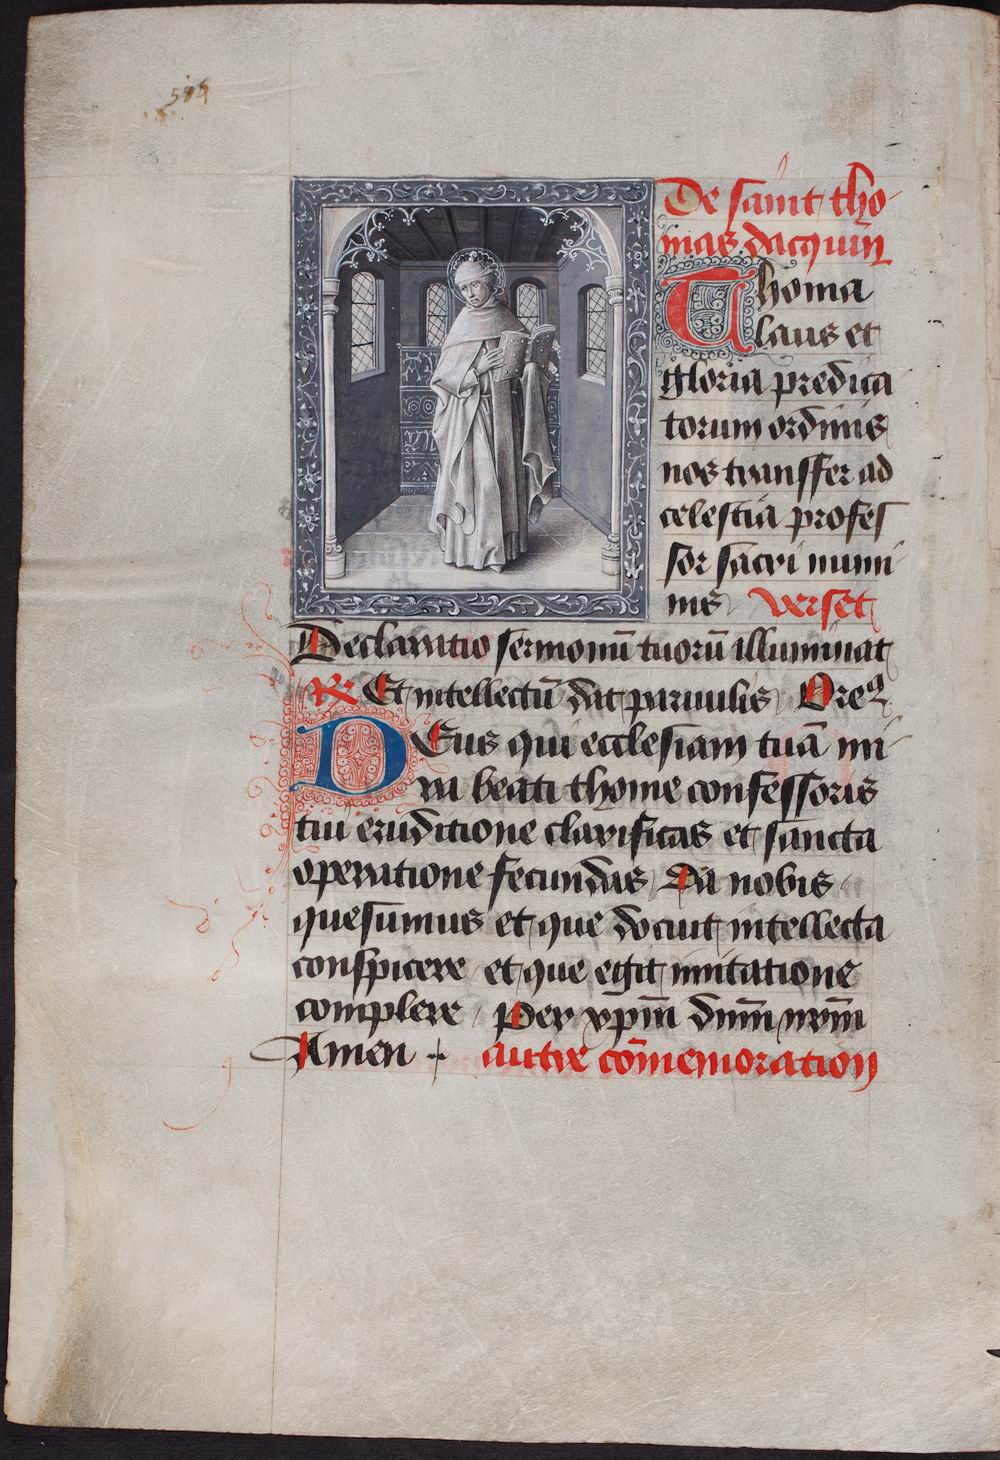 De saint tho
mas dacquin
Thoma
laus et
gloria predica
torum ordinis
nos transffer ad
celestia profes
sor sacri numi
nis verset
Declaratio sermonū tuorū illuminat
R Et intellectū dat paruulis Ore
DEus qui ecclesiam tuā mi
ra beati thome confessoris
tui eruditione clarificas et sancta
operatione fecundas Da nobis
quesumus et que docuit intellecta
conspicere et que egit imitatione
complere Per xp̄m dn̄m nr̄m
Amen autre cōmemoration